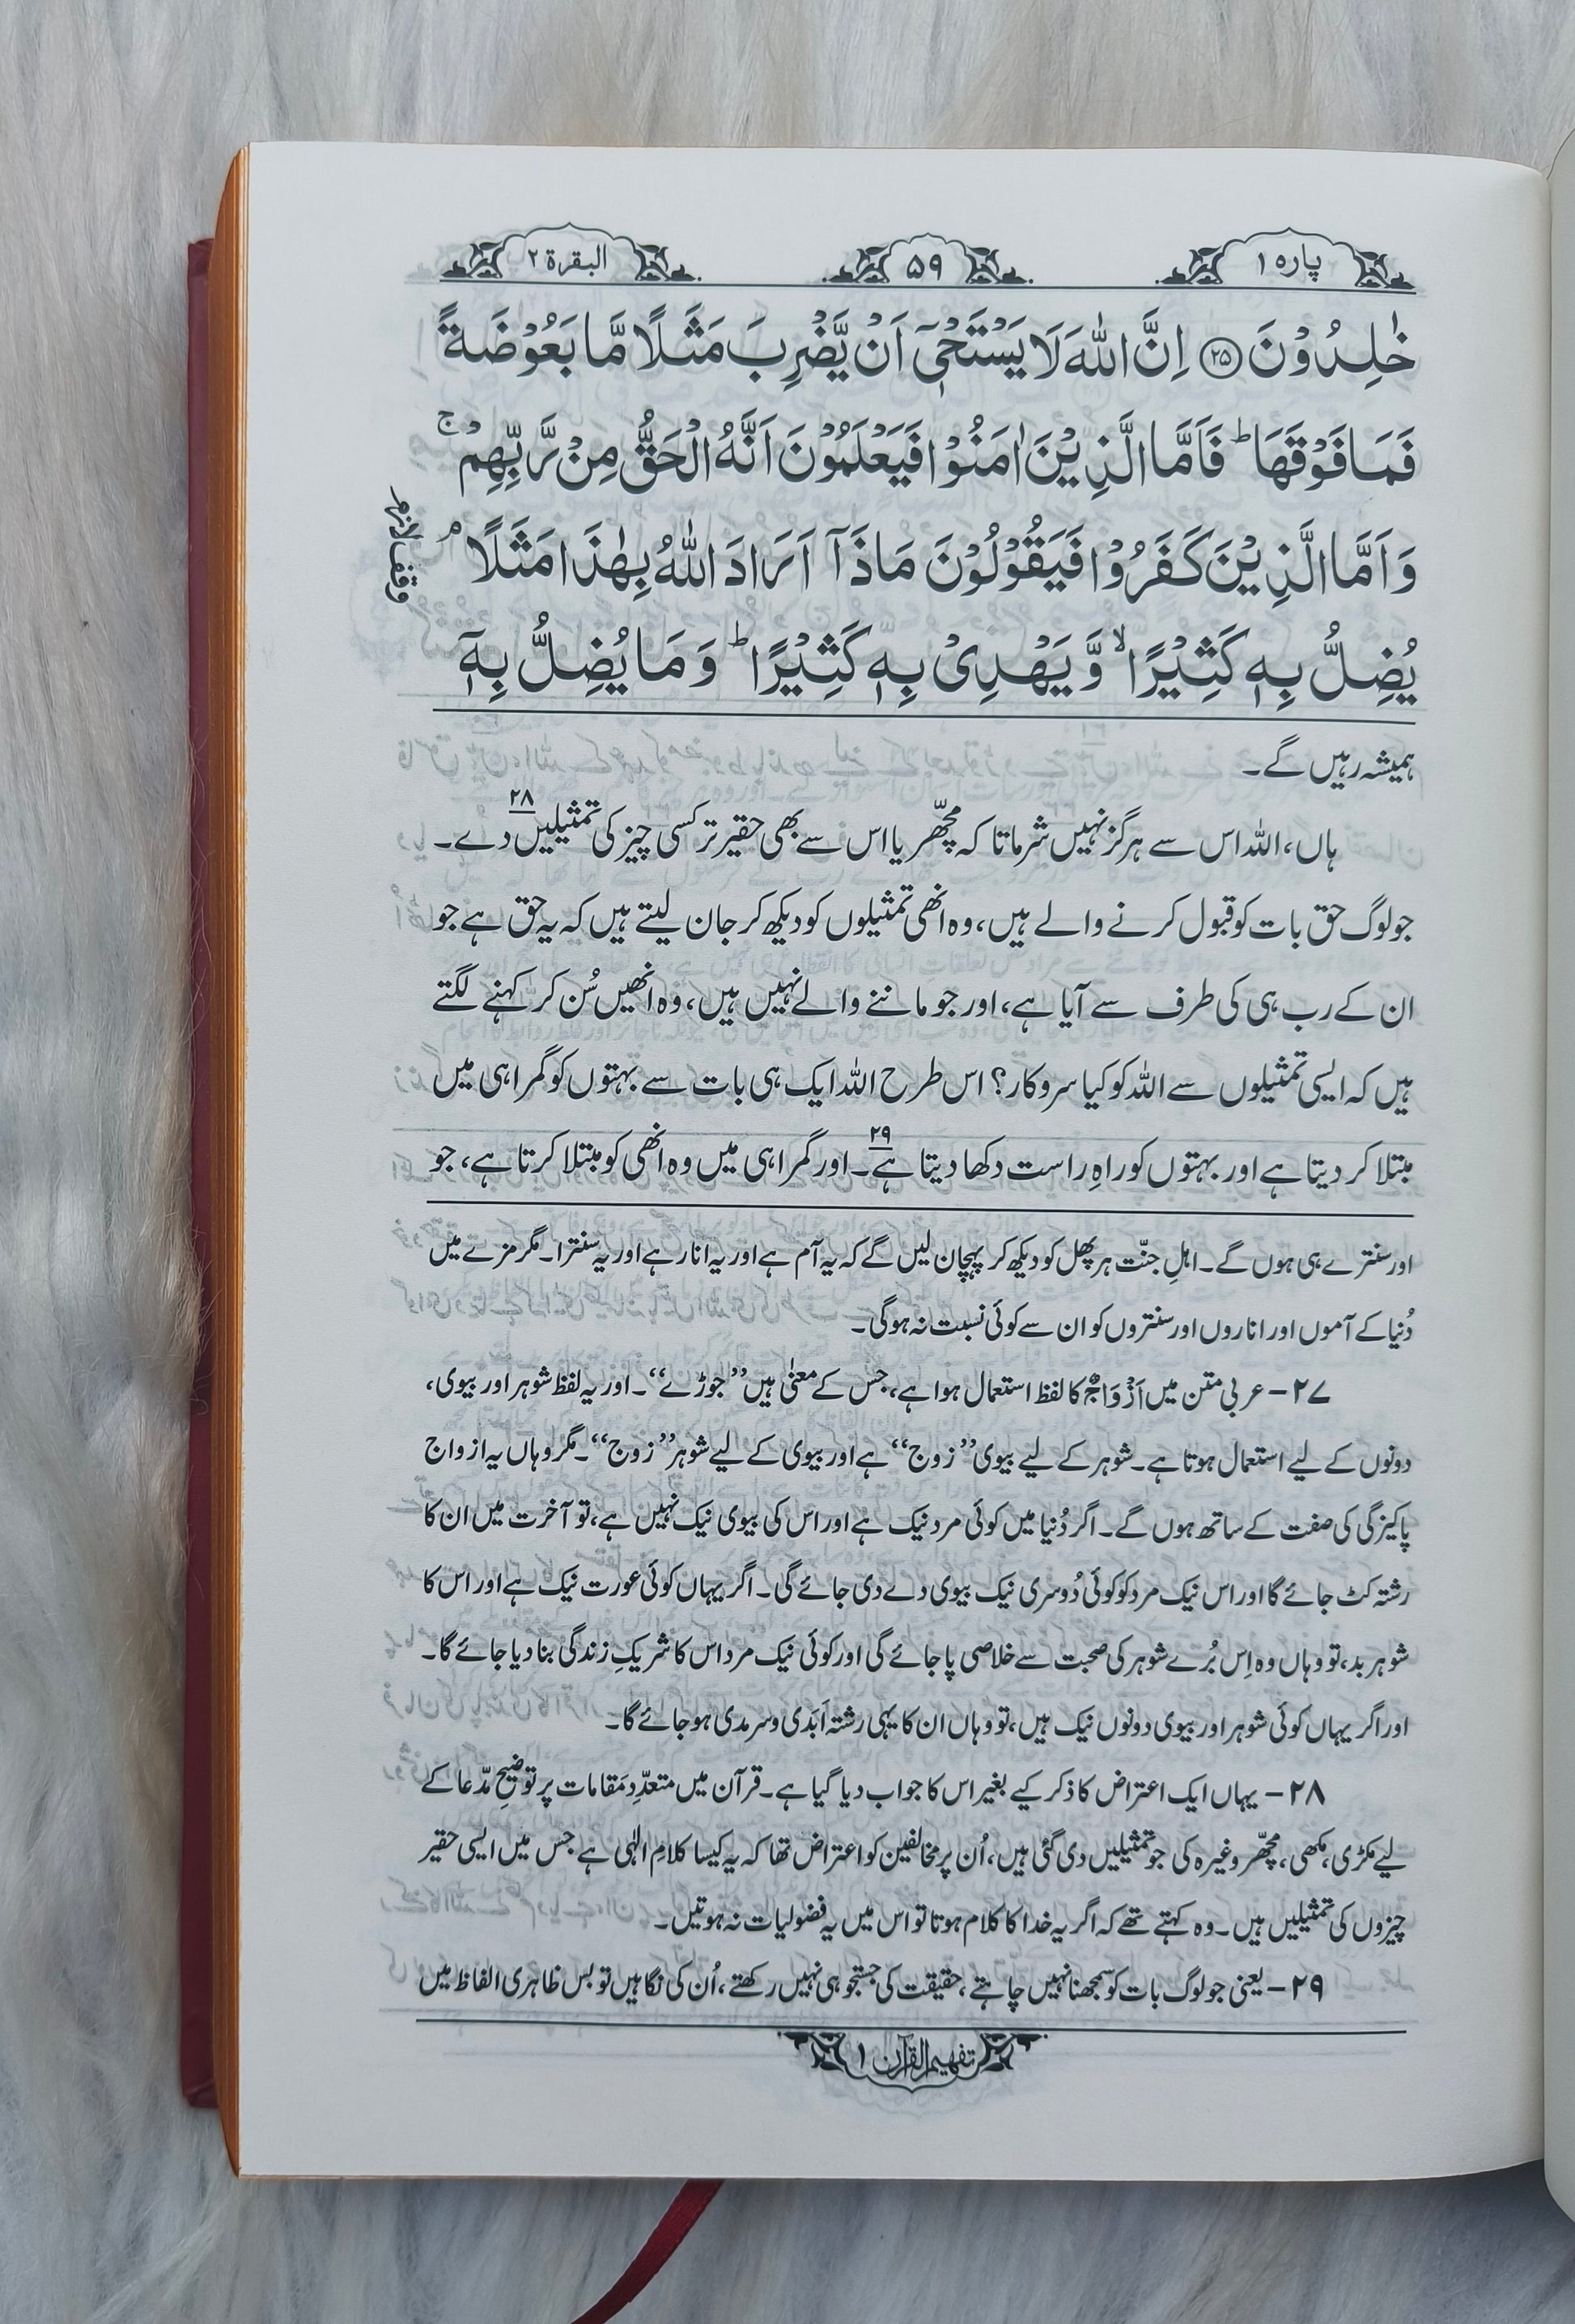 پارہ ۱
۵۹
البقرۃ ۲
خٰلِدُوْنَ ﴿۲۵﴾ اِنَّ اللّٰهَ لَا يَسْتَحْيٖۤ اَنْ يَّضْرِبَ مَثَلًا مَّا بَعُوْضَةً
فَمَا فَوْقَهَا ؕ فَاَمَّا الَّذِيْنَ اٰمَنُوْا فَيَعْلَمُوْنَ اَنَّهُ الْحَقُّ مِنْ رَّبِّهِمْ ۚ
وَ اَمَّا الَّذِيْنَ كَفَرُوْا فَيَقُوْلُوْنَ مَاذَاۤ اَرَادَ اللّٰهُ بِهٰذَا مَثَلًا ۘ
وقف لازم
يُضِلُّ بِهٖ كَثِيْرًا ۙ وَّ يَهْدِىْ بِهٖ كَثِيْرًا ؕ وَ مَا يُضِلُّ بِهٖۤ
ہمیشہ رہیں گے۔
ہاں، اللہ اس سے ہرگز نہیں شرماتا کہ مچھّر یا اس سے بھی حقیر تر کسی چیز کی تمثیلیں ۲۸ دے۔
جو لوگ حق بات کو قبول کرنے والے ہیں، وہ انھی تمثیلوں کو دیکھ کر جان لیتے ہیں کہ یہ حق ہے جو
ان کے رب ہی کی طرف سے آیا ہے، اور جو ماننے والے نہیں ہیں، وہ انھیں سُن کر کہنے لگتے
ہیں کہ ایسی تمثیلوں سے اللہ کو کیا سروکار؟ اس طرح اللہ ایک ہی بات سے بہتوں کو گمراہی میں
مبتلا کر دیتا ہے اور بہتوں کو راہِ راست دکھا دیتا ہے ۲۹۔ اور گمراہی میں وہ انھی کو مبتلا کرتا ہے، جو
اور سنترے ہی ہوں گے۔ اہلِ جنّت ہر پھل کو دیکھ کر پہچان لیں گے کہ یہ آم ہے اور یہ انار ہے اور یہ سنترا۔ مگر مزے میں
دُنیا کے آموں اور اناروں اور سنتروں کو ان سے کوئی نسبت نہ ہو گی۔
۲۷– عربی متن میں اَزْوَاجٌ کا لفظ استعمال ہوا ہے، جس کے معنیٰ ہیں ”جوڑے“۔ اور یہ لفظ شوہر اور بیوی،
دونوں کے لیے استعمال ہوتا ہے۔ شوہر کے لیے بیوی ”زوج“ ہے اور بیوی کے لیے شوہر ”زوج“۔ مگر وہاں یہ ازواج
پاکیزگی کی صفت کے ساتھ ہوں گے۔ اگر دُنیا میں کوئی مرد نیک ہے اور اس کی بیوی نیک نہیں ہے، تو آخرت میں ان کا
رشتہ کٹ جائے گا اور اس نیک مرد کو کوئی دُوسری نیک بیوی دے دی جائے گی۔ اگر یہاں کوئی عورت نیک ہے اور اس کا
شوہر بد، تو وہاں وہ اِس بُرے شوہر کی صحبت سے خلاصی پا جائے گی اور کوئی نیک مرد اس کا شریکِ زندگی بنا دیا جائے گا۔
اور اگر یہاں کوئی شوہر اور بیوی دونوں نیک ہیں، تو وہاں ان کا یہی رشتہ اَبَدی و سرمدی ہو جائے گا۔
۲۸– یہاں ایک اعتراض کا ذکر کیے بغیر اس کا جواب دیا گیا ہے۔ قرآن میں متعدِّد مَقامات پر توضیحِ مدّعا کے
لیے مکڑی، مکھی، مچھّر وغیرہ کی جو تمثیلیں دی گئی ہیں، اُن پر مخالفین کو اعتراض تھا کہ یہ کیسا کلامِ الٰہی ہے جس میں ایسی حقیر
چیزوں کی تمثیلیں ہیں۔ وہ کہتے تھے کہ اگر یہ خدا کا کلام ہوتا تو اس میں یہ فضولیات نہ ہوتیں۔
۲۹– یعنی جو لوگ بات کو سمجھنا نہیں چاہتے، حقیقت کی جستجو ہی نہیں رکھتے، اُن کی نگاہیں تو بس ظاہری الفاظ میں
تفہیم القرآن ۱